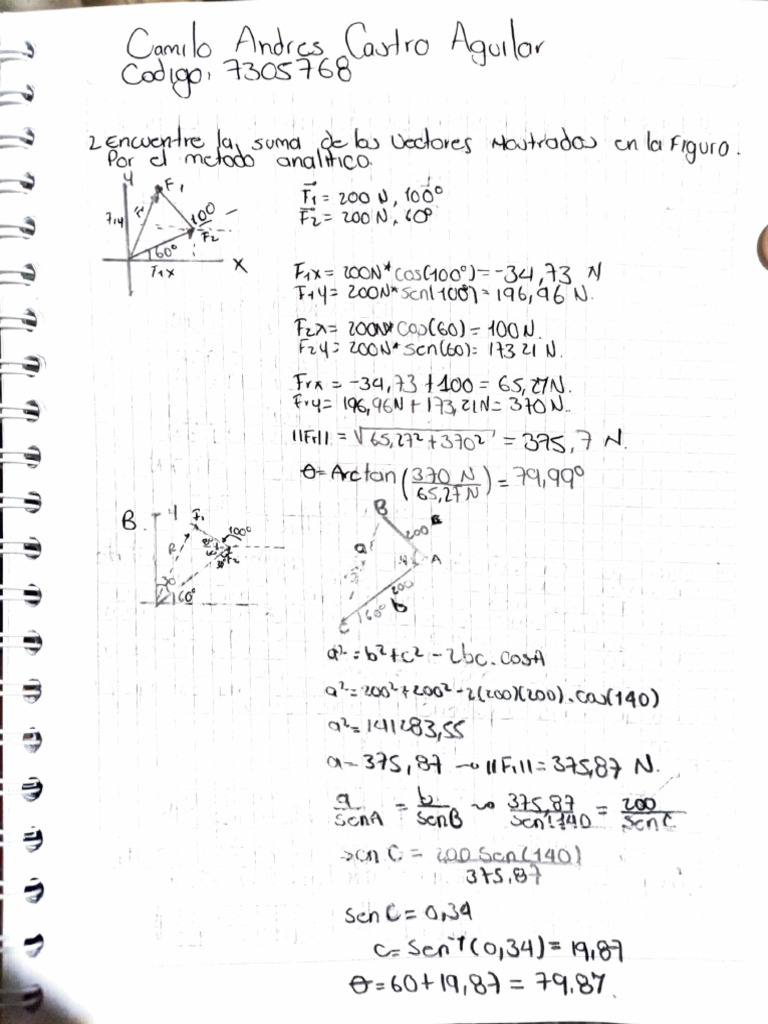 Camilo Andres Castro Aguilar
Codigo: 7305768
2 Encuentre la suma de los Vectores Mostrados en la Figura.
Por el metodo analitico.
Y
F1
100
F2
60°
X
F1x
F⃗1 = 200 N, 100°
F⃗2 = 200 N, 60°
F1x = 200N*cos(100°) = -34,73 N
F1y = 200N*sen(100°) = 196,96 N.
F2x = 200N*cos(60) = 100N.
F2y = 200N*sen(60) = 173 21 N.
Frx = -34,73 + 100 = 65,27N.
Fry = 196,96N + 173,21N = 370N.
||Fr|| = √65,27² + 370² = 375,7 N.
θ = Arctan (370 N / 65,27 N) = 79,99°
B.
Y
F1
100°
R
F2
60°
B
200
a
A
200
b
60°
C
a² = b² + c² - 2bc . cosA
a² = 200² + 200² - 2(200)(200) . cos(140)
a² = 141283,55
a = 375,87 → ||Fr|| = 375,87 N.
a / senA = b / senB → 375,87 / sen 140 = 200 / sen C
sen C = 200 sen(140) / 375,87
sen C = 0,34
C = sen⁻¹(0,34) = 19,87
θ = 60 + 19,87 = 79,87.